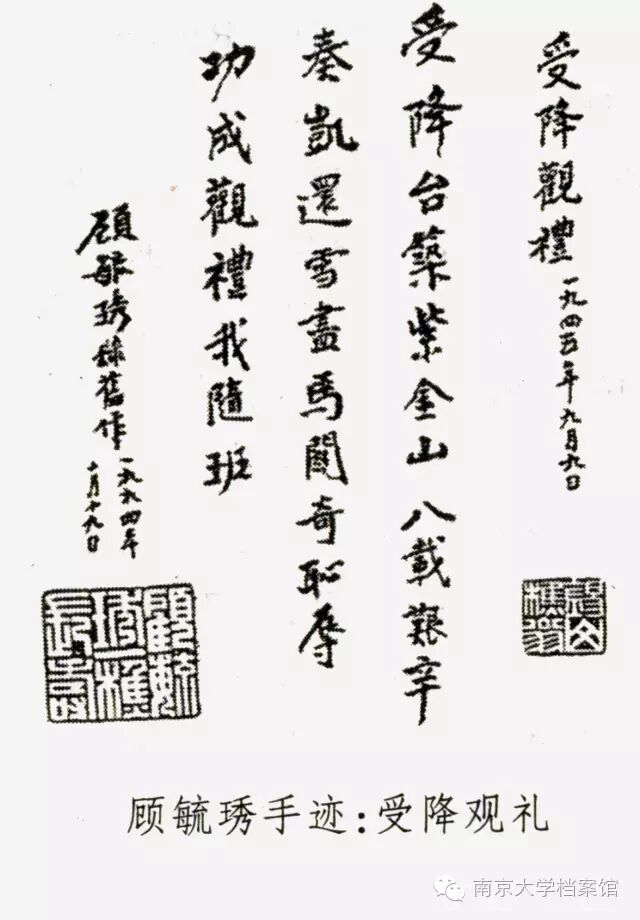 受降觀禮 一九四五年九月九日
受降台築紫金山 八載艱辛
奏凱還雪盡馬關奇恥辱
功成觀禮我隨班
顧毓琇錄舊作 一九九四年
十月十九日
顧毓琇一樵長壽
顾毓琇手迹:受降观礼
南京大学档案馆